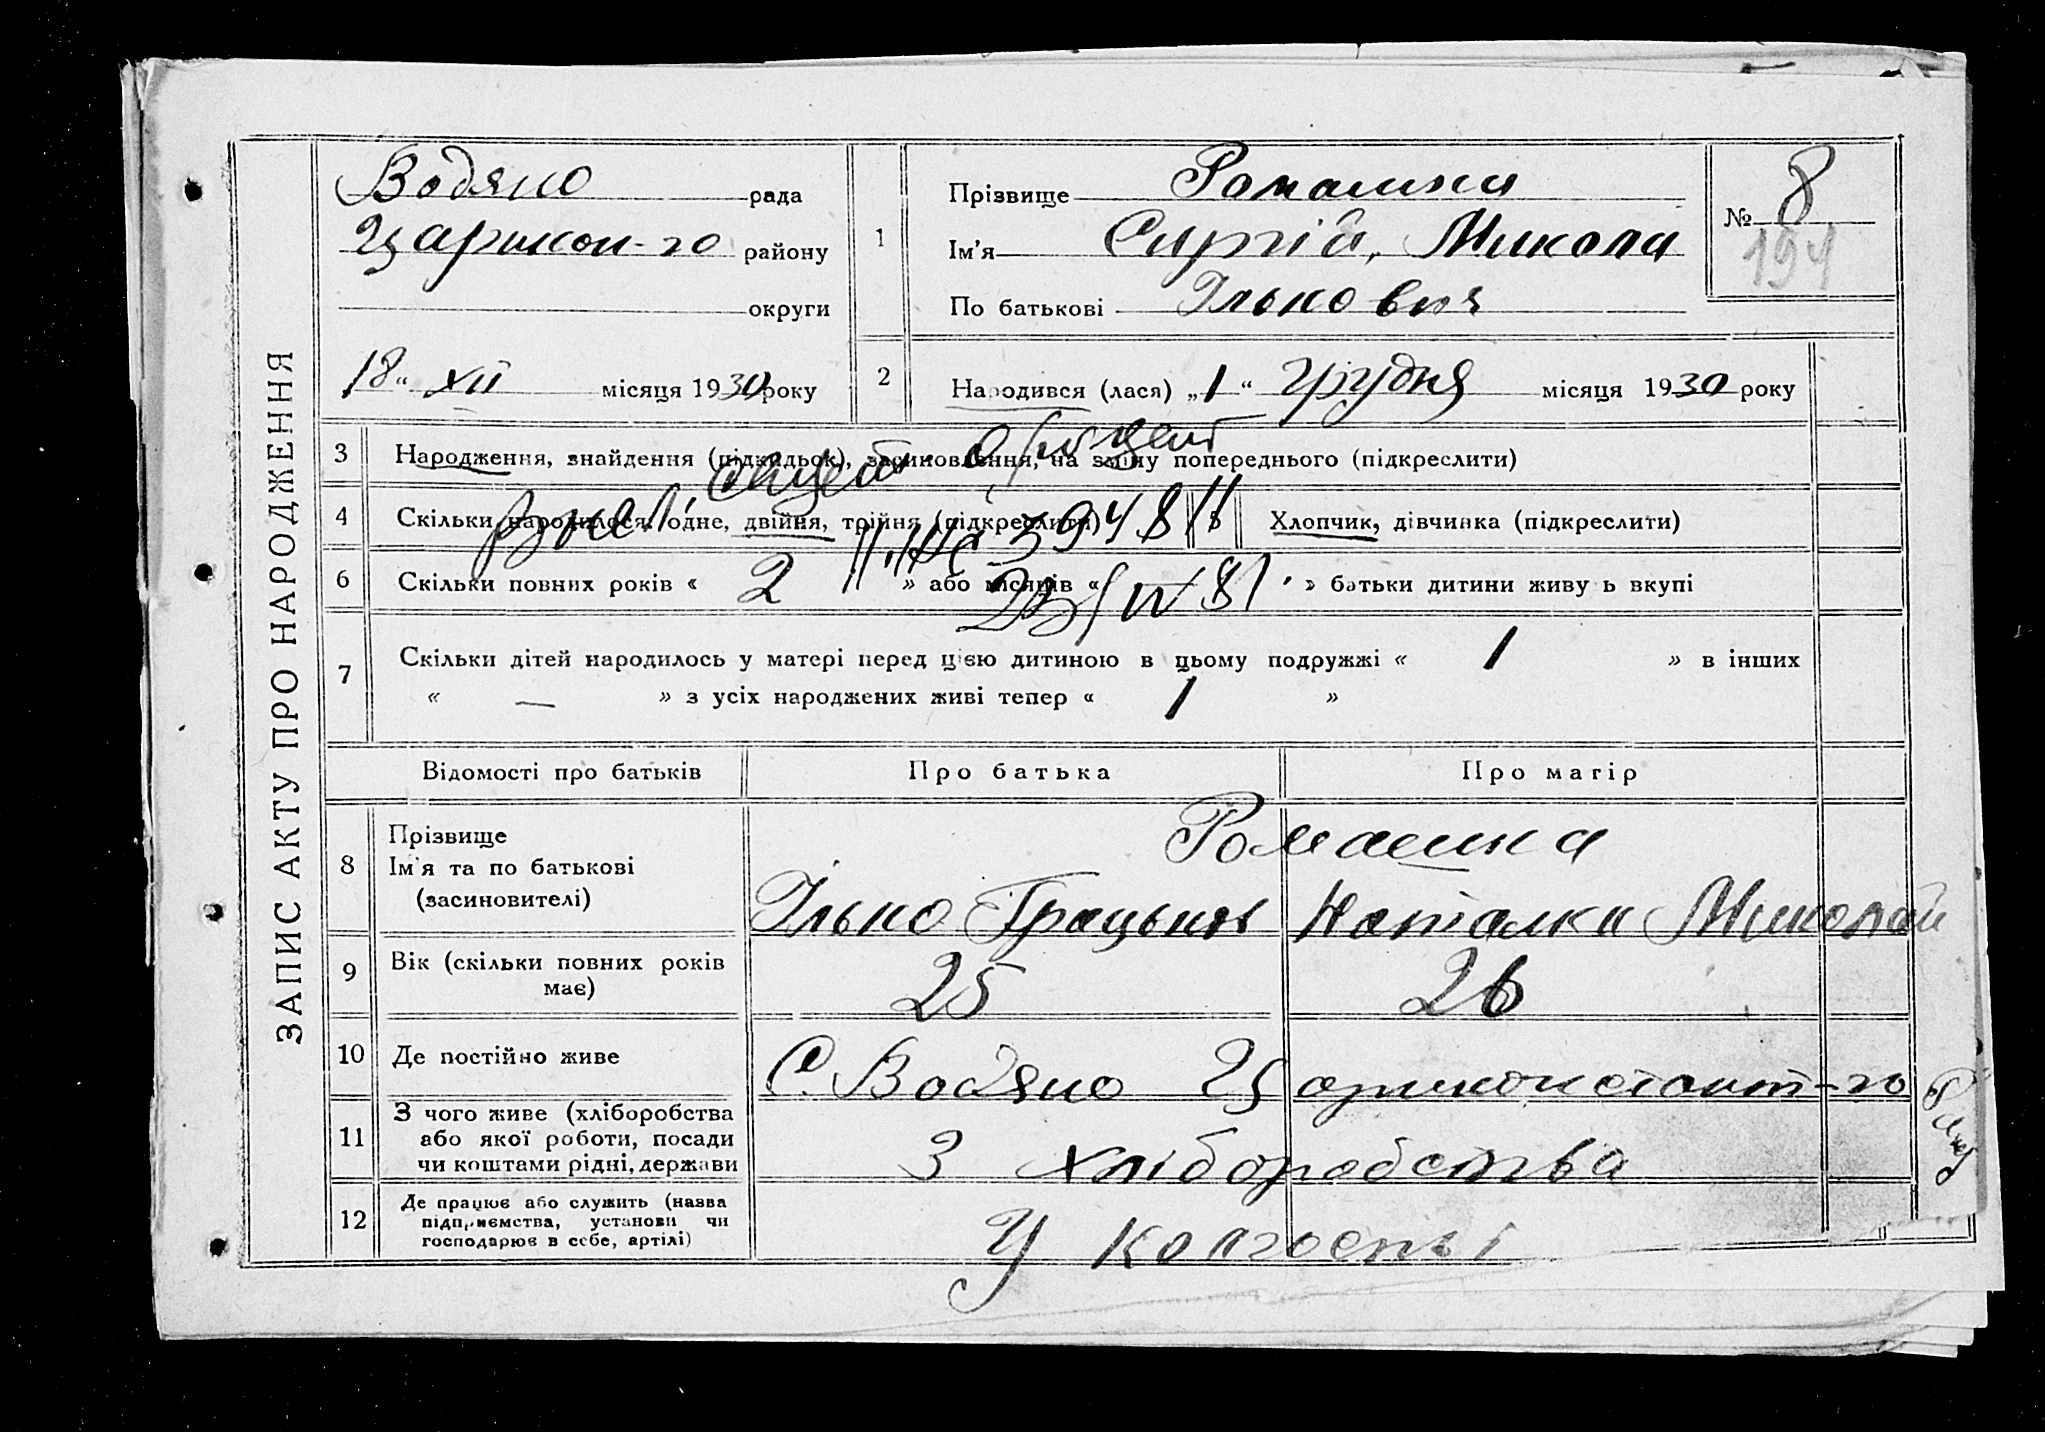 ЗАПИС АКТУ ПРО НАРОДЖЕННЯ
Водяно рада
Царикон-го району
округи
18 " XII місяця 1930 року
1
Прізвище Ромашка
Ім'я Сиргій, Микола
По батькові Ількович
№ 8
194
2 Народився (лася) „1" грудня місяця 1930 року
3 Народження, знайдення (підкидьок), засиновлення, на зміну попереднього (підкреслити)
4 Скільки народилося: одне, двійня, трійня (підкреслити) 5 Хлопчик, дівчинка (підкреслити)
6 Скільки повних років « 2 » або місяців « » батьки дитини живуть вкупі
23/IV 81
7 Скільки дітей народилось у матері перед цією дитиною в цьому подружжі « 1 » в інших
« — » з усіх народжених живі тепер « 1 »
Відомості про батьків Про батька Про матір
8 Прізвище
Ім'я та по батькові
(засиновителі)
Ромашка
Ілько Грацьків Наталка Миколай
9 Вік (скільки повних років
має)
25 26
10 Де постійно живе С. Водяно
11 З чого живе (хліборобства
або якої роботи, посади
чи коштами рідні, держави
З хліборобства
12 Де працює або служить (назва
підприємства, установи чи
господарює в себе, артілі)
У колгоспі